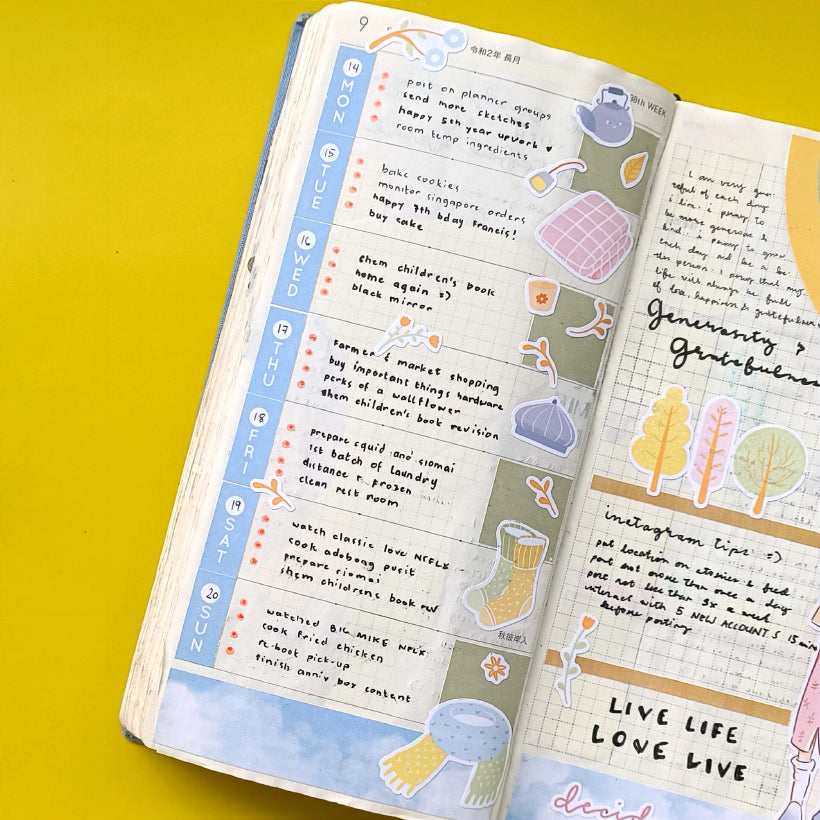 9
令和2年 長月
38th WEEK
14
MON
post on planner groups
send more sketches
happy 5th year upwork ♥
room temp ingredients
15
TUE
bake cookies
monitor singapore orders
happy 7th bday Francis!
buy cake
16
WED
shem children's book
home again =)
black mirror
17
THU
farmer & market shopping
buy important things hardware
perks of a wallflower
shem children's book revision
18
FRI
prepare squid and siomai
1st batch of laundry
distance F. frozen
clean rest room
19
SAT
watch classic love NFLX
cook adobong pusit
prepare siomai
shem children's book rev
秋彼岸入
20
SUN
watched BIG MIKE NFLX
cook fried chicken
re-book pick-up
finish anniv box content
I am very gra-
teful of each day
i live. i pray to
be more generous &
kind. i promise to grow
each day and be a be-
ter person. i pray that my
life will always be full
of love, happiness & gratefulness
Generosity &
gratefulness
instagram tips =)
put location on stories & feed
post not more than once a day
post not less than 3x a week
interact with 5 NEW ACCOUNTS 15 min
before posting
LIVE LIFE
LOVE LIVE
decid